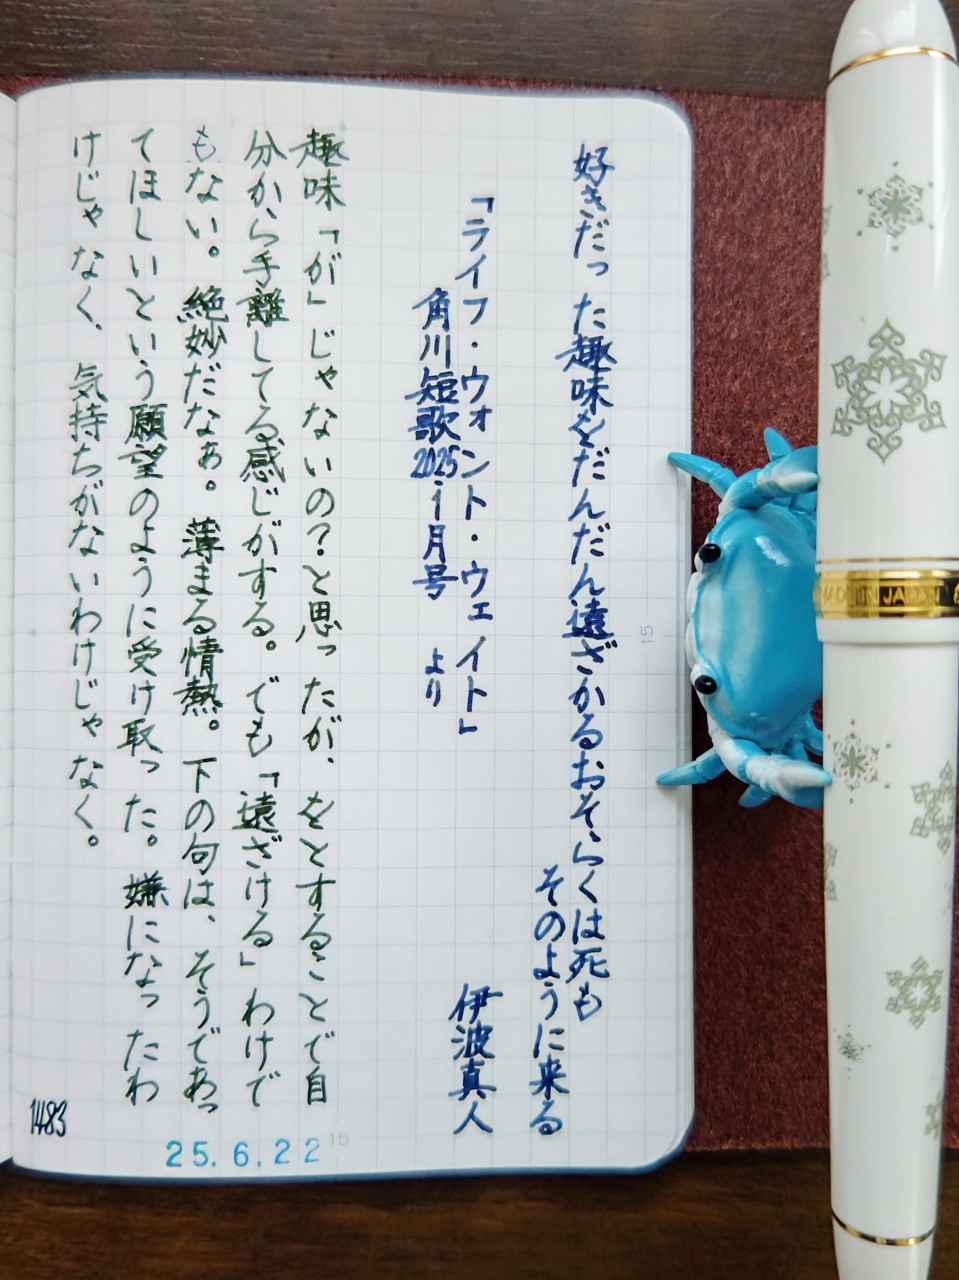 好きだった趣味をだんだん遠ざかるおそらくは死も
そのように来る
伊波真人
「ライフ・ウォント・ウェイト」
角川短歌2025・1月号 より
趣味「が」じゃないの？と思ったが、をとすることで自
分から手離してる感じがする。でも「遠ざける」わけで
もない。絶妙だなぁ。薄まる情熱。下の句は、そうであっ
てほしいという願望のように受け取った。嫌になったわ
けじゃなく、気持ちがないわけじゃなく。
1483
25.6.22
15
15
MADE IN JAPAN